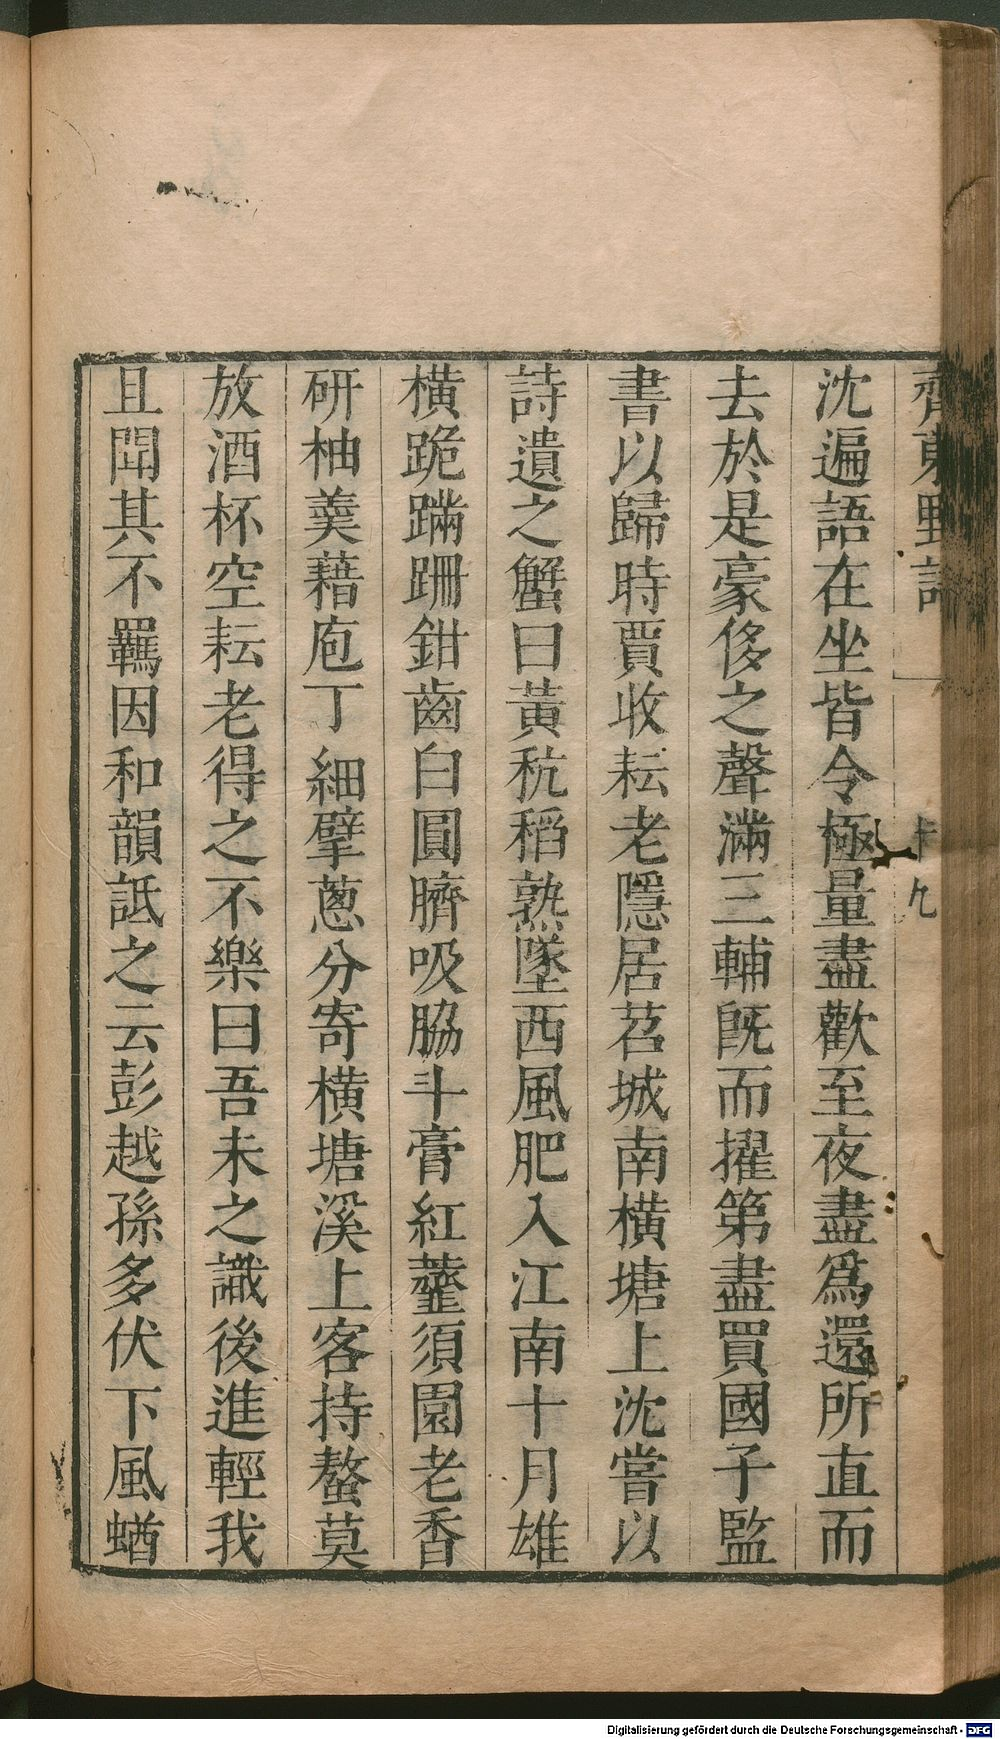 齊東野語
十九
沈遍語在坐皆令極量盡歡至夜盡爲還所直而
去於是豪侈之聲滿三輔旣而擢第盡買國子監
書以歸時賈收耘老隱居苕城南橫塘上沈嘗以
詩遺之蟹曰黃秔稻熟墜西風肥入江南十月雄
橫跪蹣跚鉗齒白圓臍吸脇斗膏紅虀須園老香
研柚羮藉庖丁細擘蔥分寄橫塘溪上客持螯莫
放酒杯空耘老得之不樂曰吾未之識後進輕我
且聞其不羈因和韻詆之云彭越孫多伏下風蝤
Digitalisierung gefördert durch die Deutsche Forschungsgemeinschaft - DFG